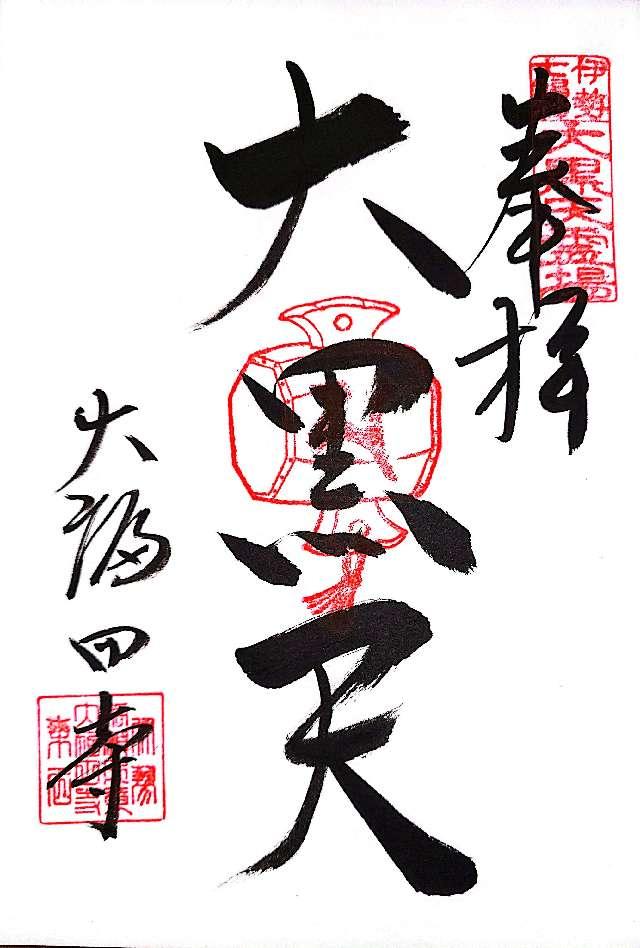 奉拝
伊勢七福
大黒天霊場
大黒天
大福田寺